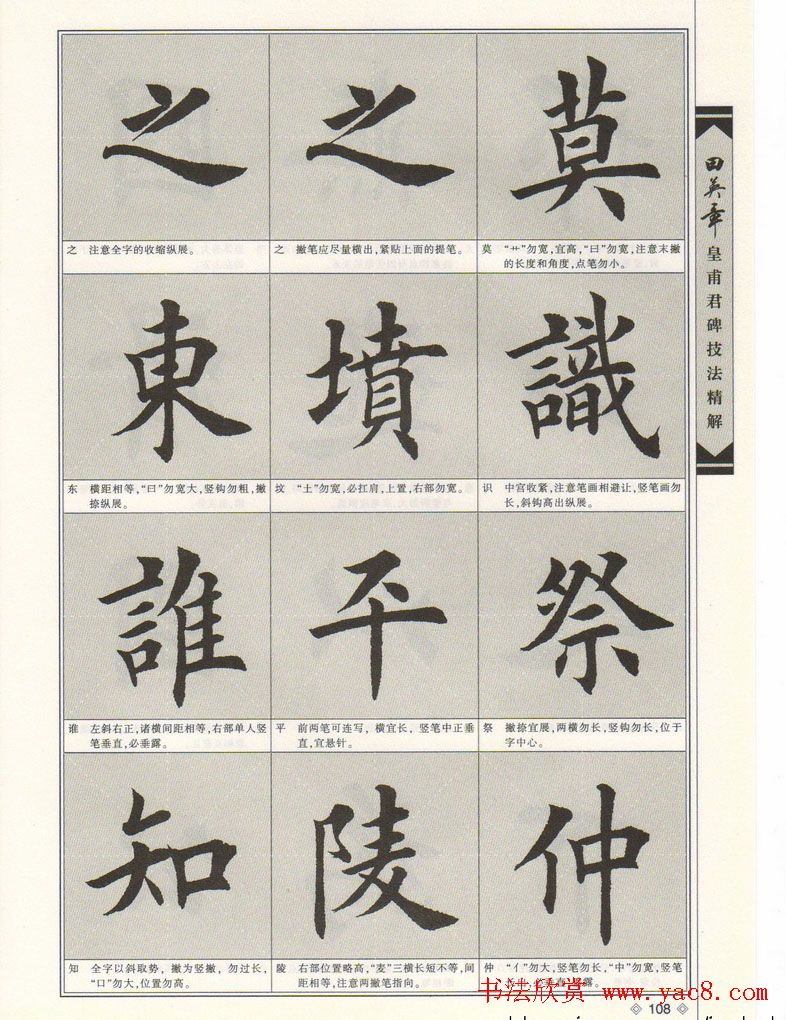 之
之
莫
之 注意全字的收缩纵展。
之 撇笔应尽量横出，紧贴上面的提笔。
莫 “艹”勿宽，宜高，“曰”勿宽，注意末撇
的长度和角度，点笔勿小。
東
墳
識
东 横距相等，“曰”勿宽大，竖钩勿粗，撇
捺纵展。
坟 “土”勿宽，必扛肩，上置，右部勿宽。
识 中宫收紧，注意笔画相避让，竖笔画勿
长，斜钩高出纵展。
誰
平
祭
谁 左斜右正，诸横间距相等，右部单人竖
笔垂直，必垂露。
平 前两笔可连写，横宜长，竖笔中正垂
直，宜悬针。
祭 撇捺宜展，两横勿长，竖钩勿长，位于
字中心。
知
陵
仲
知 全字以斜取势，撇为竖撇，勿过长，
“口”勿大，位置勿高。
陵 右部位置略高，“麦”三横长短不等，间
距相等，注意两撇笔指向。
仲 “亻”勿大，竖笔勿长，“中”勿宽，竖笔
田英章
皇甫君碑技法精解
书法欣赏 www.yac8.com
108